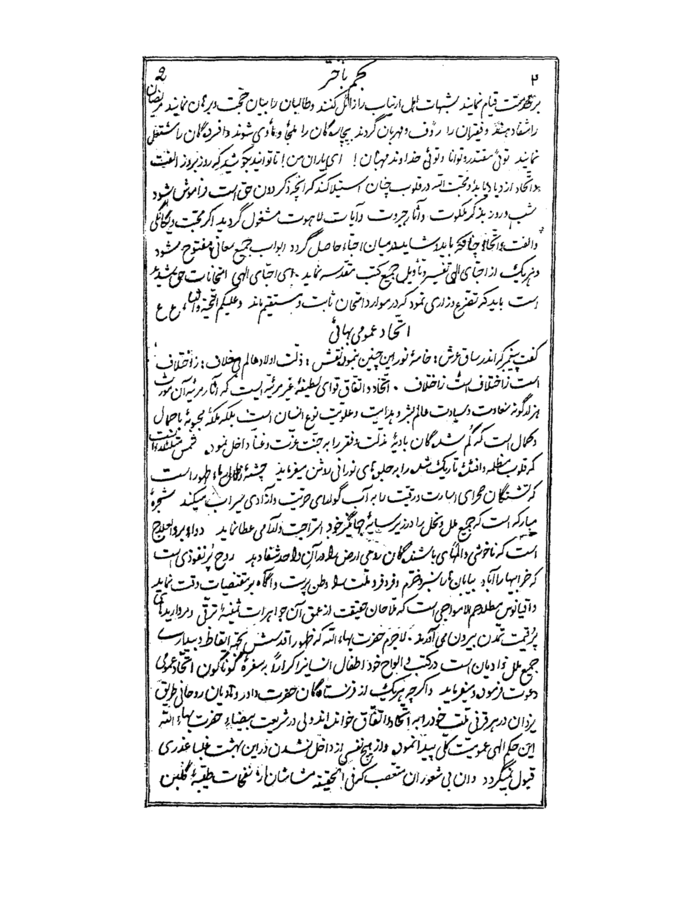 ۲ نجم باختر 2
بر خدمت قیام نمایند شبهات اهل ارتیاب را زائل کنند و طالبان را بیان حجت و برهان نمایند مریضان
را شفا دهند و فقیران را رؤف و مهربان گردند بیچارگان را ملجأ و مأوی شوند و افسردگان را مشتعل
نمایند توئی مقتدر و توانا و توئی خداوند مهربان ! ای یاران من ! تا توانید بکوشید که روز بروز الفت
و اتحاد ازدیاد یابد و محبت الله در قلوب چنان استیلا کند که آنچه ذکر دون حق است فراموش شود
شب و روز بذکر ملکوت و آثار جبروت و آیات لاهوت مشغول گردید اگر محبت و یگانگی
و الفت و اتحاد چنانکه باید و شاید در میان احباء حاصل گردد ابواب جمیع معانی مفتوح شود
و هر یک از احبای الهی تفسیر و تأویل جمیع کتب مقدسه نماید ای احبای الهی امتحانات حق شدید
است باید که تضرع و زاری نمود که در موارد امتحان ثابت و مستقیم ماند و علیکم التحیة و الثناء ع ع
اتحاد عمومی بهائی
گفت پیغمبر که اندر ساق عرش : خامهٔ نور این چنین نمود نقش : ذلت اولاد عالم بی خلاف : ز اختلاف
است ز اختلاف است ز اختلاف . اتحاد و اتفاق قوای لطیفهٔ غیر مرئیه است که آثار مرئیه آن مورث
هر گونه سعادت و سیادت عالم بشر و هدایت و علویت نوع انسان است بلکه ملکهٔ محبوبهٔ با جمال
و کمال است که گم شدگان بادیهٔ ذلت و فقر را به جنت عزت و غنا داخل نمود شمس
که قلوب مظلمه و افئدهٔ تاریک شده را به جلوه‌های نورانی روشن میفرماید چشمهٔ زلال ماء طهور است
که تشنگان صحرای اسارت و رقیت را به آب گوارای حریت و آزادی سیراب میکند شجرهٔ
مبارکه است که جمیع ملل و نحل را در زیر سایهٔ جانگیر خود استراحت و آرامی عطا نماید دواء سریع العلاج
است که ناخوشی و المهای باشندگان روی ارض را در آن واحد شفا دهد روح پر نفوذی است
که خرابیها را آباد بیابانها را سبز و خرم و فرد فرد ملت را وطن پرست و آگاه بر مقتضیات وقت نماید
و اقیانوس متلاطم الامواجی است که ملاحان حقیقت از عمق آن جواهرات ثمینهٔ ترقی و مرواریدهای
پر قیمت تمدن بیرون می آورند . لاجرم حضرت بهاء الله که ظهور اقدسش بجهة ایقاظ و بیداری
جمیع ملل و ادیان است در کتب و الواح خود اطفال انسانیرا کراراً به سفرهٔ گوناگون اتحاد عمومی
دعوت فرموده و میفرماید و اگر چه هر یک از فرستادگان حضرت داور و هادیان روحانی طریق
یزدان در هر قرنی ملت خود را به اتحاد و اتفاق خوانده‌اند ولی در شریعت بیضاء حضرت بهاء الله
این حکم الهی عمومیت کلی پیدا نمود و از هیچ نفسی از داخل نشدن در این بهشت علیا عذری
قبول نمیگردد و آن بی شعوران متعصب که فی الحقیقه مشامشان از نفحات طیبهٔ گلبن